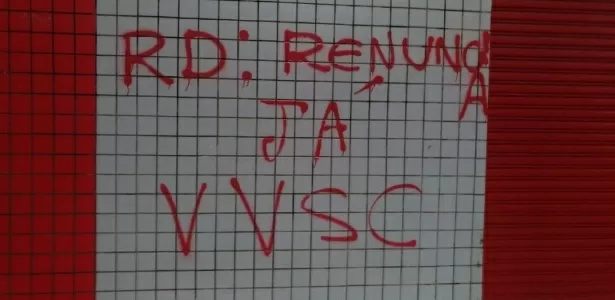 RD: RENUNCIA
JÁ
VVSC